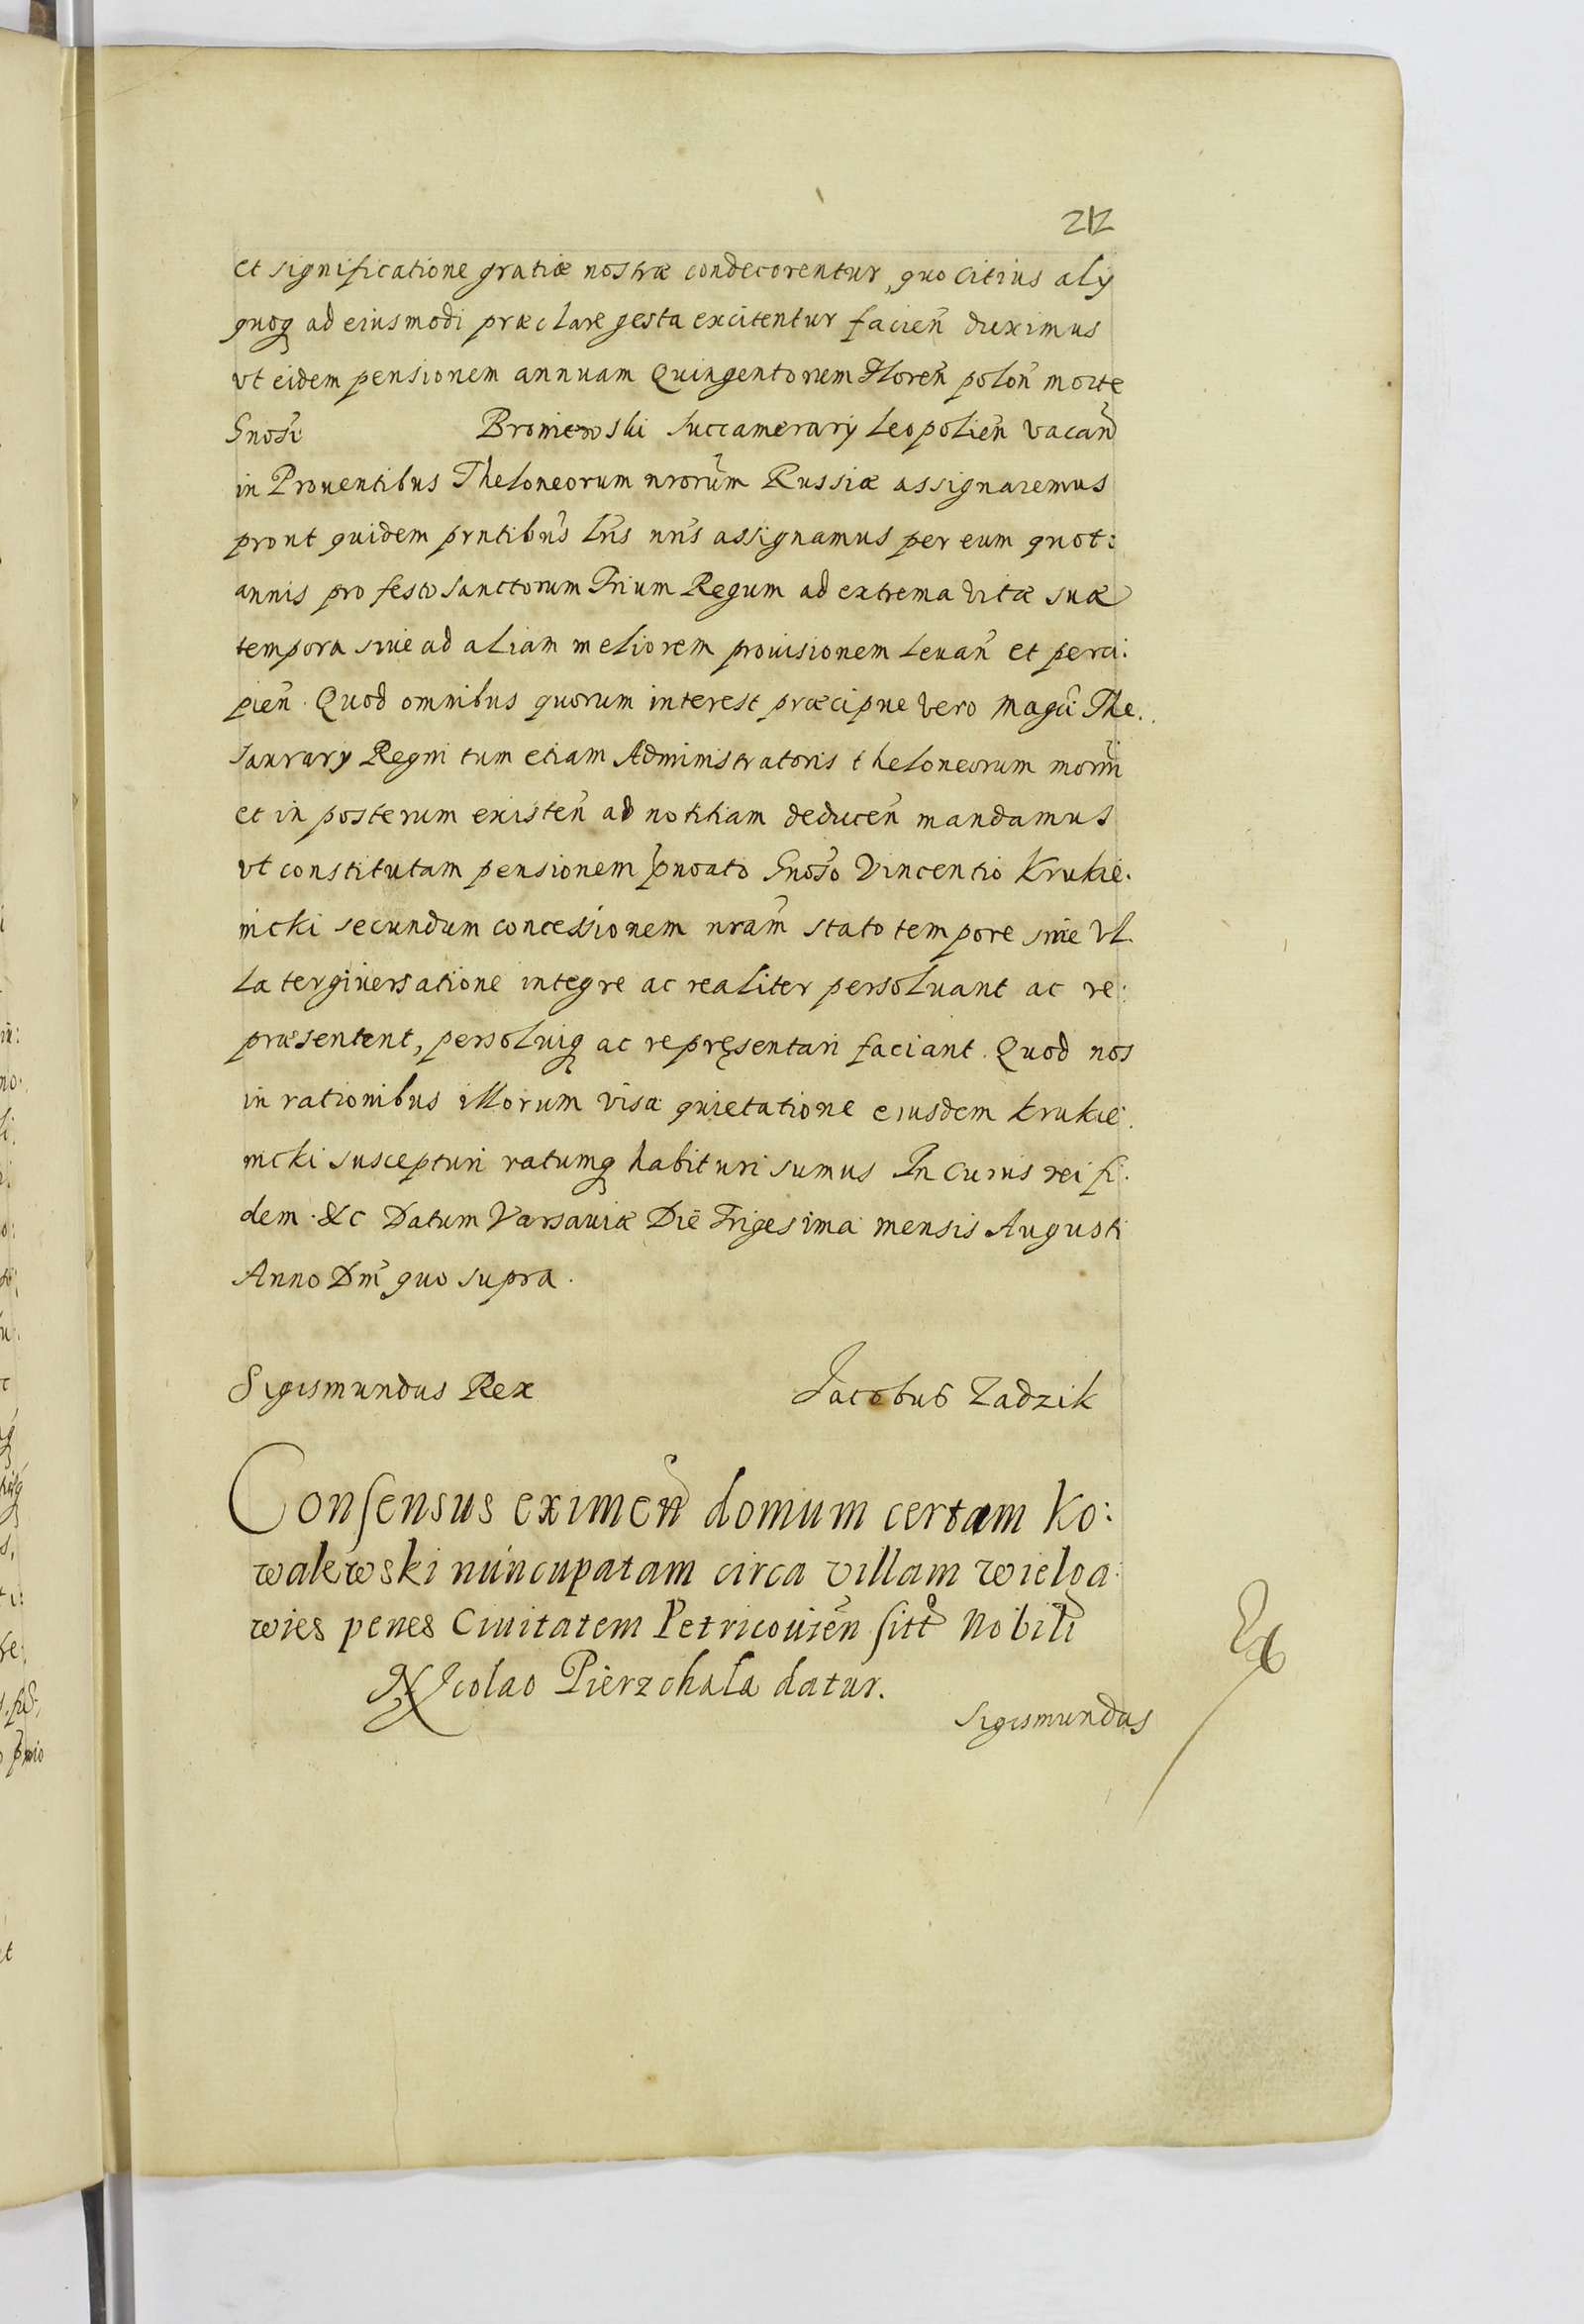 212
et significatione gratiæ nostræ condecorentur, quo citius alÿ
quoq ad eiusmodi præclare gesta excitentur facień duximus
vt eidem pensionem annuam Quingentorum Floreń poloń morte
Gnosi Broniewski succamerarÿ Leopolień vacań
in Prouentibus Theloneorum nrorum Russiæ assignaremus
prout quidem prntibus lris nris assignamus per eum quot:
annis pro festo Sanctorum Trium Regum ad extrema vitæ suæ
tempora siue ad aliam meliorem prouisionem leuań et perci:
pień. Quod omnibus quorum interest præcipue vero Magci The.
saurarÿ Regni tum etiam Administratoris theloneorum
et in posterum existeń ad notitiam deduceń mandamus
vt constitutam pensionem Gnoso Vincentio Krukie.
nicki secundum concessionem nram stato tempore sine vl.
la tergiuersatione integre ac realiter persoluant ac re:
præsentent, persoluiq ac repręsentari faciant. Quod nos
in rationibus illorum visa quietatione eiusdem Krukie.
nicki suscepturi ratumq habituri sumus In cuius rei fi.
dem. &c Datum Varsauiæ Die Trigesima mensis Augusti
Anno Dni quo supra.
Sigismundus Rex Jacobus Zadzik
Consensus eximeń domum certam Ko:
walewski nuncupatam circa villam wielga
wies penes Ciuitatem Petricouień sitt Nobili
Nicolao Pierzchala datur.
Sigismundus